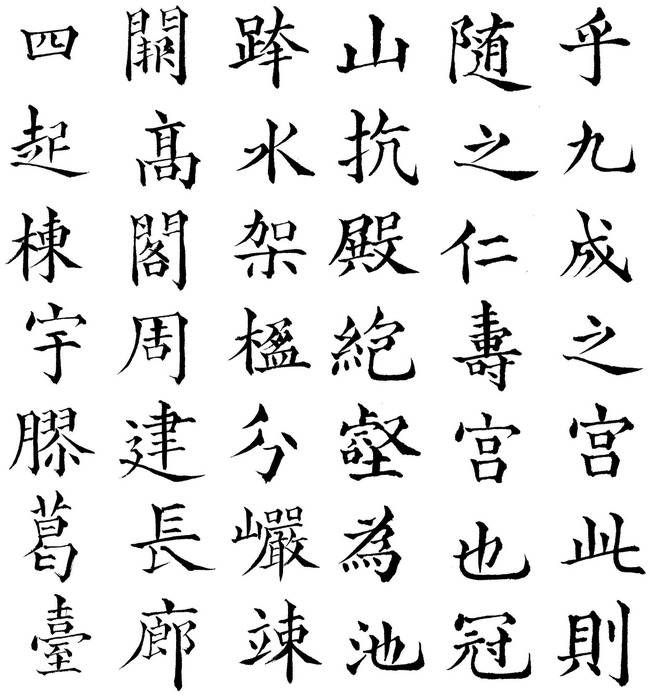 乎九成之宫此則
随之仁壽宫也冠
山抗殿絕壑為池
跨水架楹分巖竦
闕髙閣周建長廊
四起棟宇膠葛臺